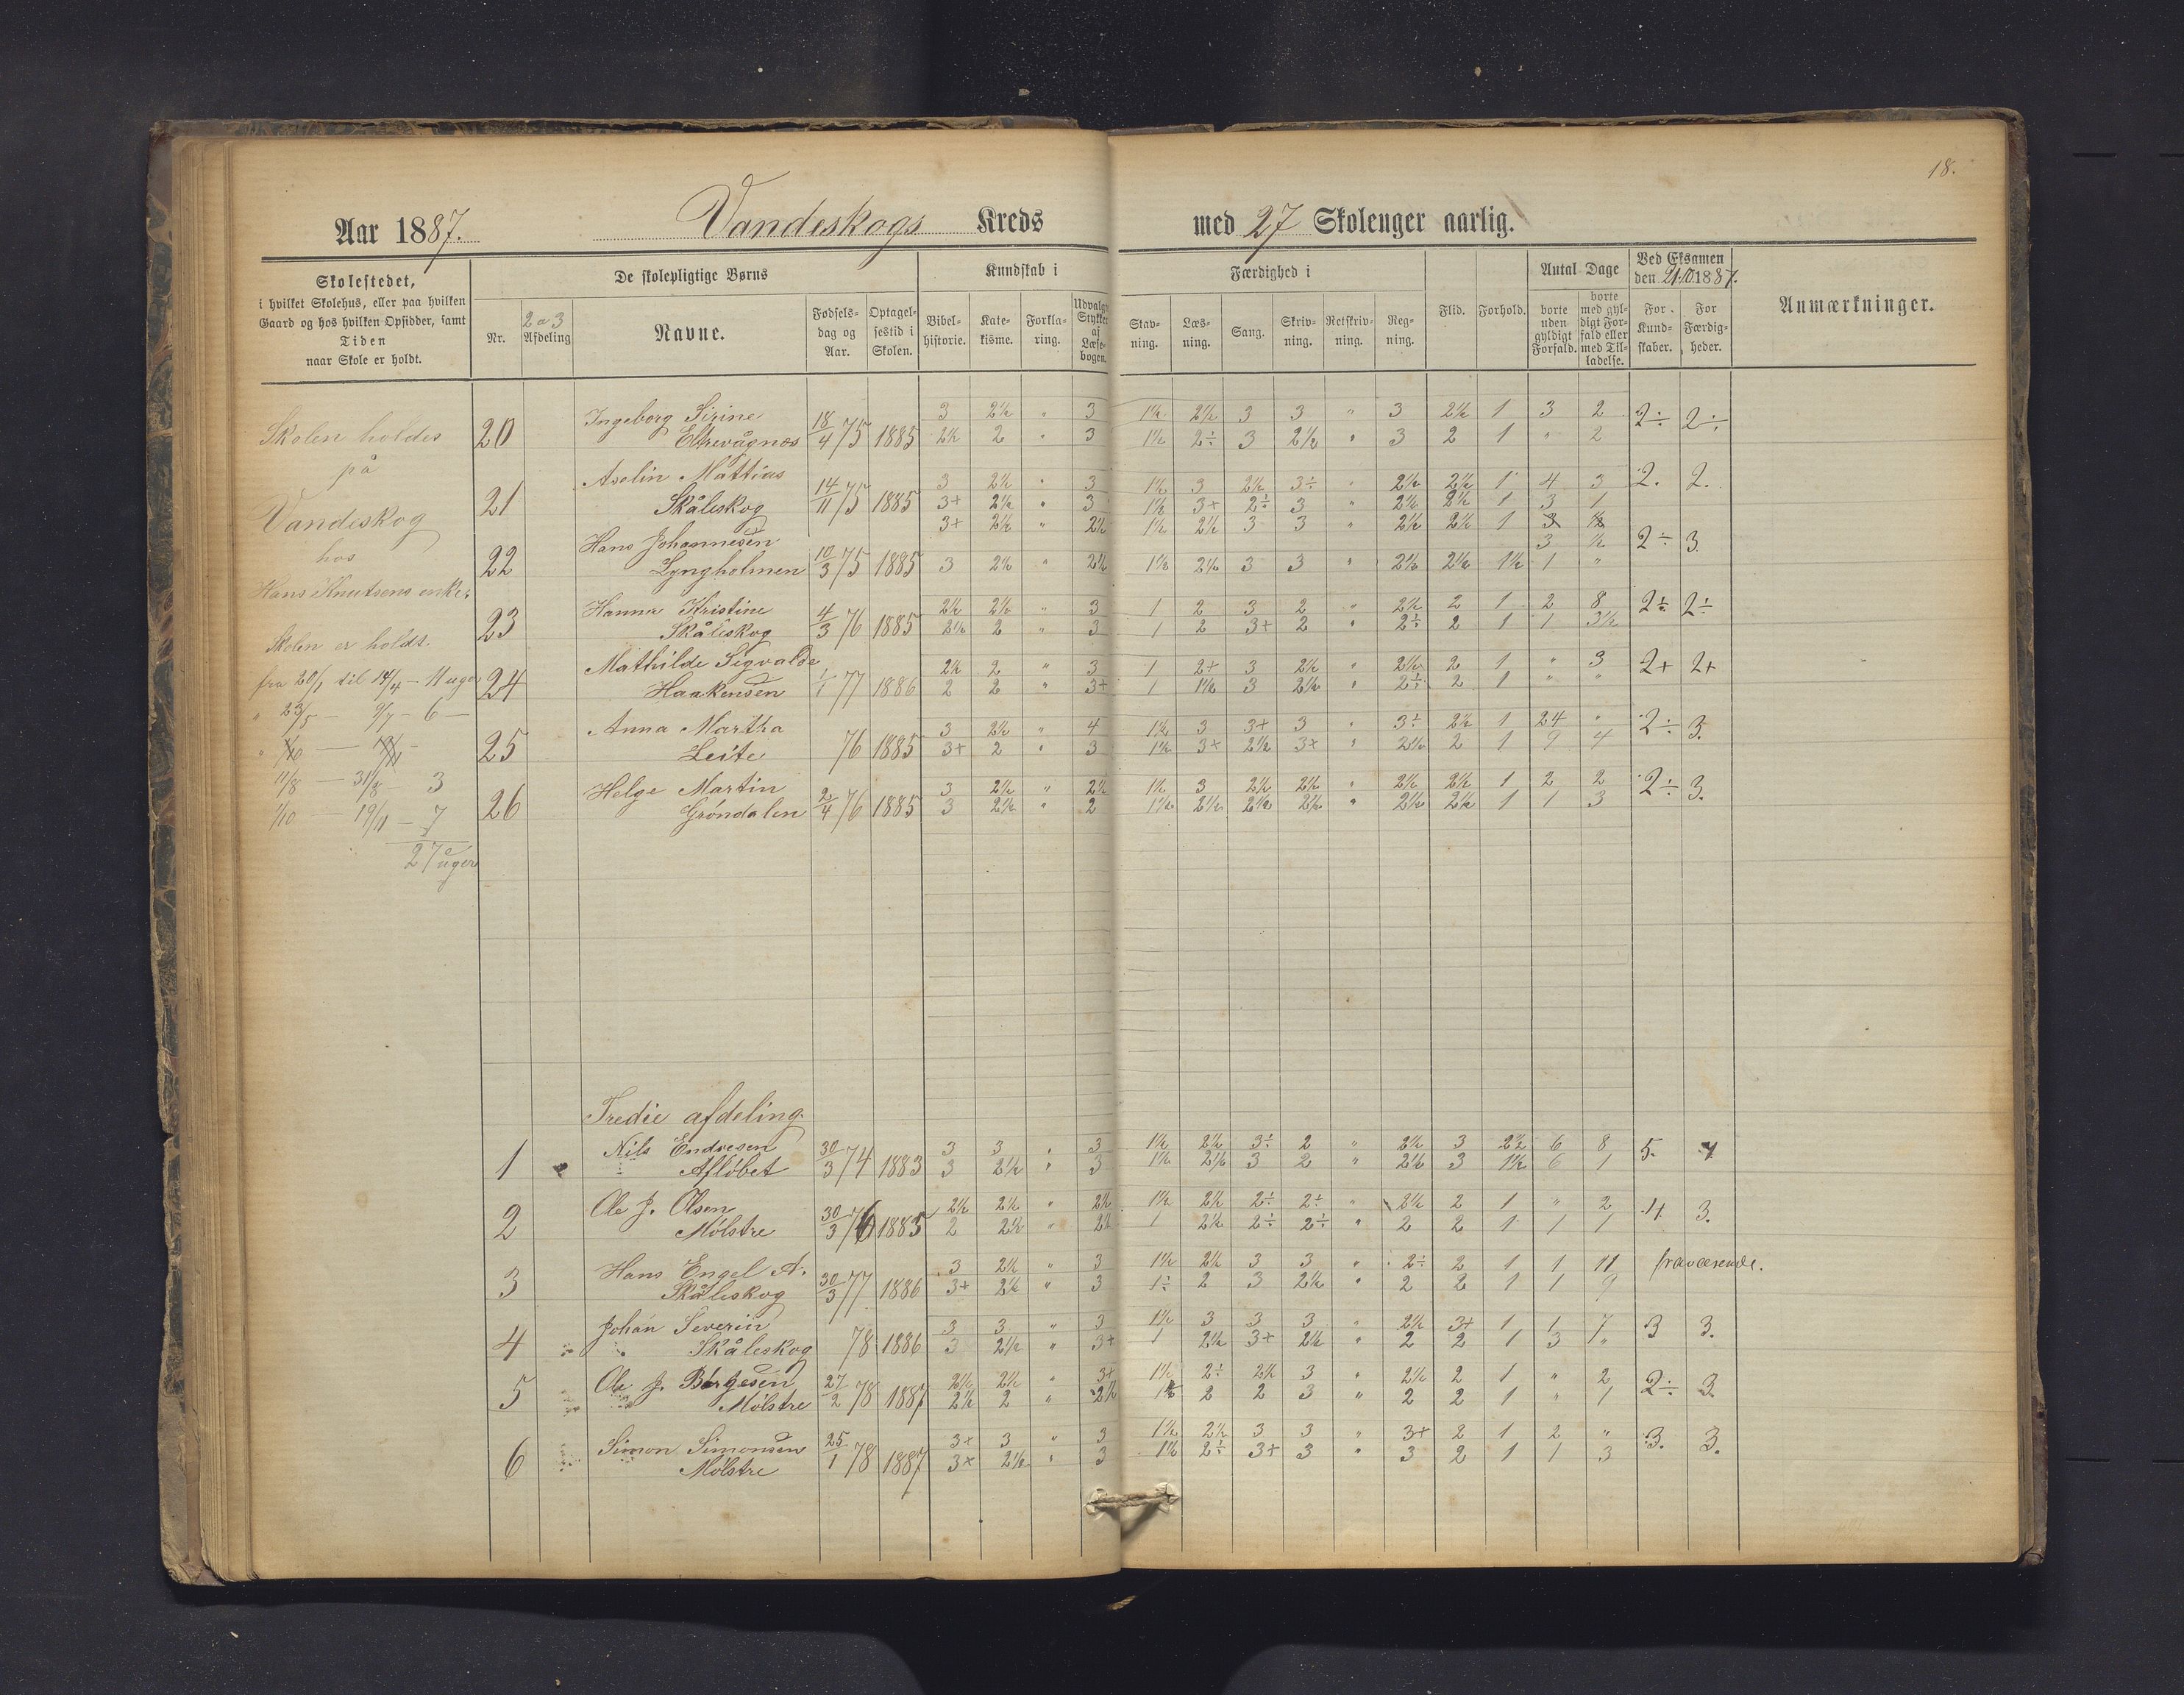 18.
Aar 1887. Vandeskogs Kreds med 27 Skoleuger aarlig.
Skolestedet, i hvilket Skolehus, eller paa hvilken Gaard og hos hvilken Opsidder, samt Tiden naar Skole er holdt.
De skolepligtige Børns
Nr. 2 o 3 Afdeling Navne. Fødselsdag og Aar. Optagelsestid i Skolen.
Kundskab i
Bibelhistorie. Katekisme. Forklaring. Udvalgte Stykker af Læsebogen.
Færdighed i
Stavning. Læsning. Sang. Skrivning. Retskrivning. Regning.
Flid. Forhold.
Antal Dage
borte uden gyldigt Forfald. borte med gyldigt Forfald eller med Tilladelse.
Ved Eksamen den 21/10 1887.
For Kundskaber. For Færdigheder.
Anmærkninger.
Skolen holdes
på
Vandeskog
hos
Hans Knutsens enke.
Skolen er holdt.
fra 20/1 til 14/4 – 11 uger
" 23/5 — 9/7 – 6 —
11/8 — 31/8 3
1/10 — 19/11 – 7
27 uger
20 Ingeborg Sirine 18/4 75 1885 3 2½ " 3 1½ 2½ 3 3 " 3 2½ 1 3 2 2÷ 2÷
Eltrevågnæs 2½ 2 " 3 1½ 2÷ 3 2½ " 3 2 1 " 2
21 Aselin Mattias 14/11 75 1885 3 2½ " 3 1½ 3 2½ 3÷ " 2½ 2½ 1 4 3 2. 2.
Skåleskog 3+ 2½ " 3 1½ 3+ 2÷ 3 " 2½ 2½ 1 3 1
22 Hans Johannesen 10/3 75 1885 3+ 2½ " 2½ 1½ 2½ 3 3 " 2½ 2½ 1 3 ½ 2÷ 3.
Lyngholmen 3 2½ " 2½ 1½ 2½ 3 3 " 2½ 2½ 1½ 1 "
23 Hanna Kristine 4/3 76 1885 2½ 2½ " 3 1 2 3 2 " 2½ 2 1 2 8 2÷ 2÷
Skåleskog 2½ 2 " 3 1 2 3+ 2 " 2÷ 2 1 1 3½
24 Mathilde Sigvalde 1/1 77 1886 2½ 2 " 3 1 2+ 3 2½ " 2½ 2 1 " 3 2+ 2+
Haakensen 2 2 " 3+ 1 1½ 3 2½ " 2÷ 2 1 " "
25 Anna Martha 76 1885 3 2½ " 4 1½ 3 3+ 3 " 3÷ 2½ 1 24 " 2÷ 3.
Leite 3+ 2 " 3 1½ 3+ 2½ 3+ " 2½ 2 1 9 4
26 Helge Martin 2/4 76 1885 3 2½ " 2½ 1½ 3 2½ 2½ " 2½ 2½ 1 2 2 2÷ 3.
Grøndalen 3 2½ " 2 1½ 2½ 2½ 2½ " 2½ 2½ 1 1 3
Tredie afdeling.
1 Nils Endresen 30/3 74 1883 3 3 " 3 1½ 2½ 3÷ 2 " 2½ 3 2½ 6 8 5. 4
Afløbet 3 2½ " 3 1½ 2½ 3 2 " 2½ 3 1½ 6 1
2 Ole J. Olsen 30/3 76 1885 2½ 2½ " 2½ 1½ 2½ 2÷ 2÷ " 2½ 2 1 " 2 4 3.
Mølstre 2 2½ " 2½ 1 2½ 2÷ 2÷ " 2 2 1 1 1
3 Hans Engel A. 30/3 77 1886 3 2½ " 3 1½ 2½ 3 3 " 2÷ 2 1 1 11 fraværende.
Skåleskog 3+ 2½ " 3 1÷ 2 3 2½ " 2 2 1 1 9
4 Johan Severin 78 1886 3 3 " 3 1½ 3 3 3 " 2½ 3+ 1 1 7 3 3.
Skåleskog 3 2½ " 3+ 1 2½ 3+ 2½ " 2 2 1 3 1"
5 Ole J. Børgesen 27/2 78 1887 2½ 2½ " 3+ 1½ 2÷ 2½ 3 " 2½ 2 1 " 2 2÷ 3.
Mølstre 2½ 2 " 2½ 1½ 2 2 3 " 2 2 1 " 1
6 Simon Simonsen 25/1 78 1887 3+ 3 " 3 1½ 2½ 3 3 " 3+ 2 1 2 " 3. 3.
Mølstre 3+ 2½ " 3 1½ 2÷ 3+ 3 " 3 2 1 1 3